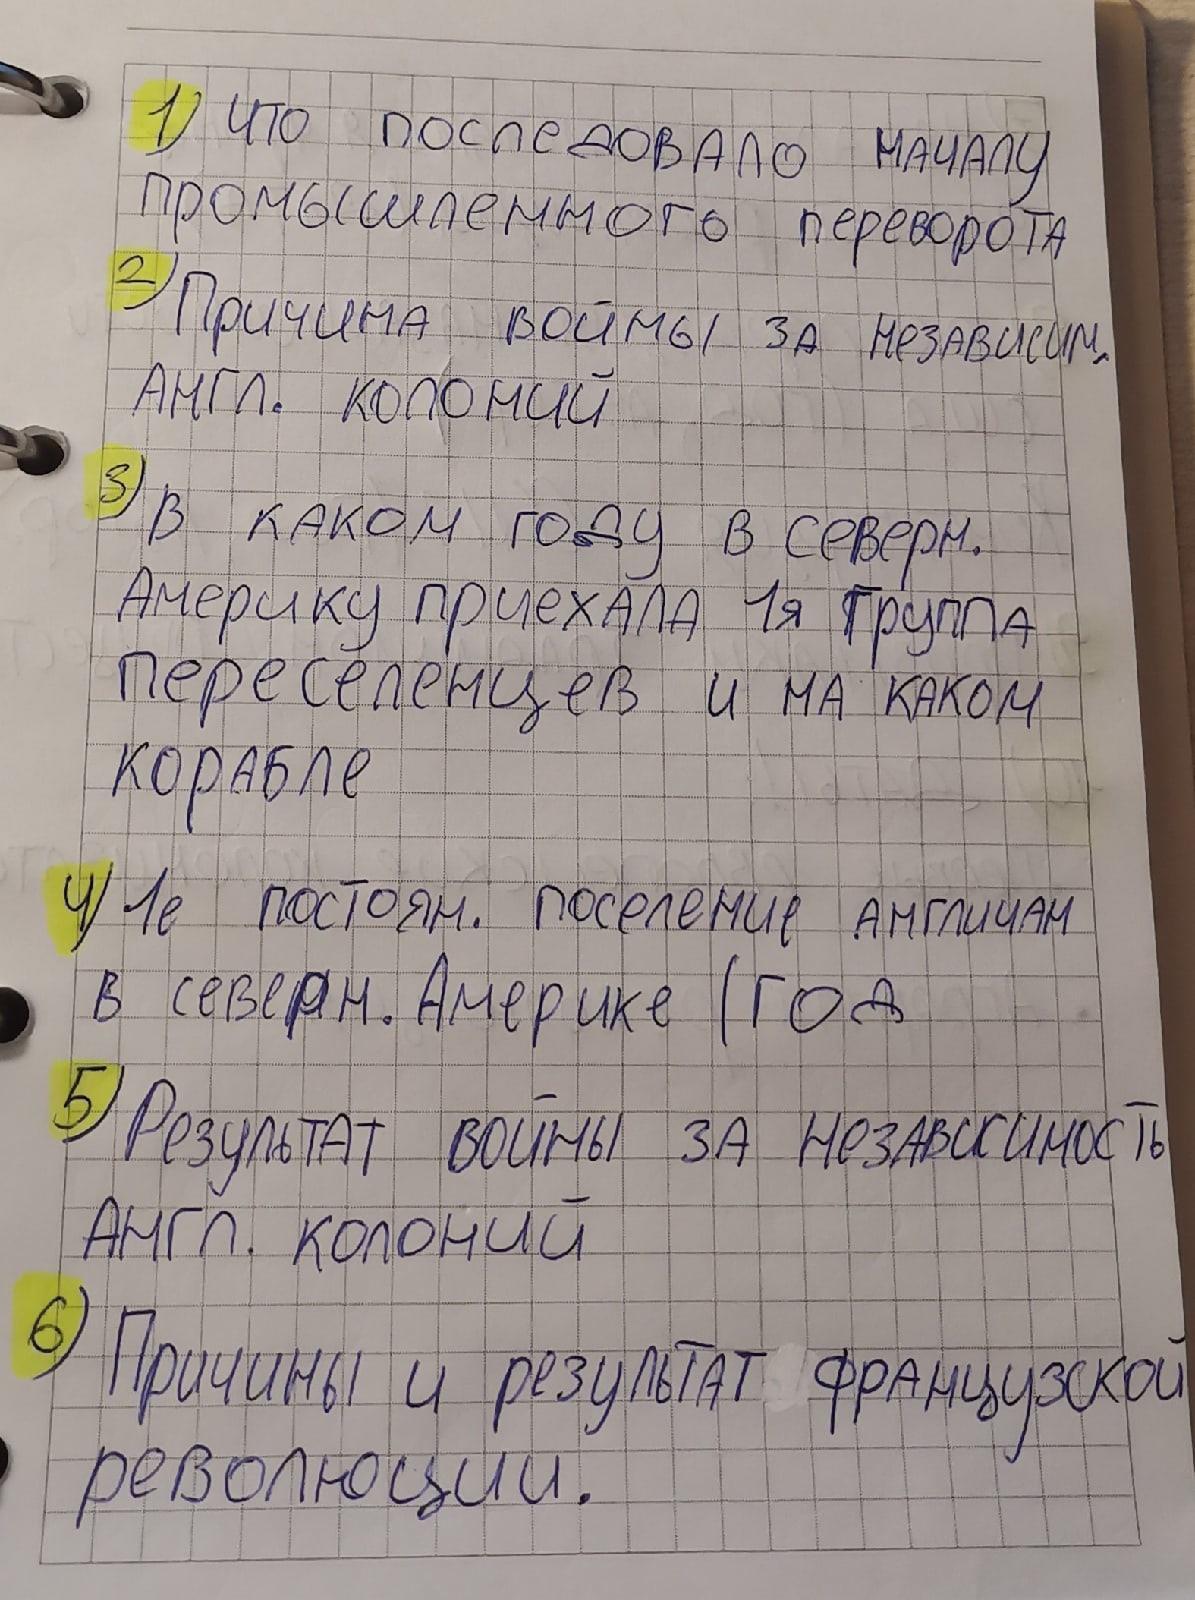 1) Что последовало началу
промышленного переворота
2) Причина войны за независим.
Англ. колоний
3) В каком году в северн.
Америку приехала 1я группа
переселенцев и на каком
корабле
4) 1е постоян. поселение англичан
в северн. Америке (год
5) Результат войны за независимость
Англ. колоний
6) Причины и результат французской
революции.